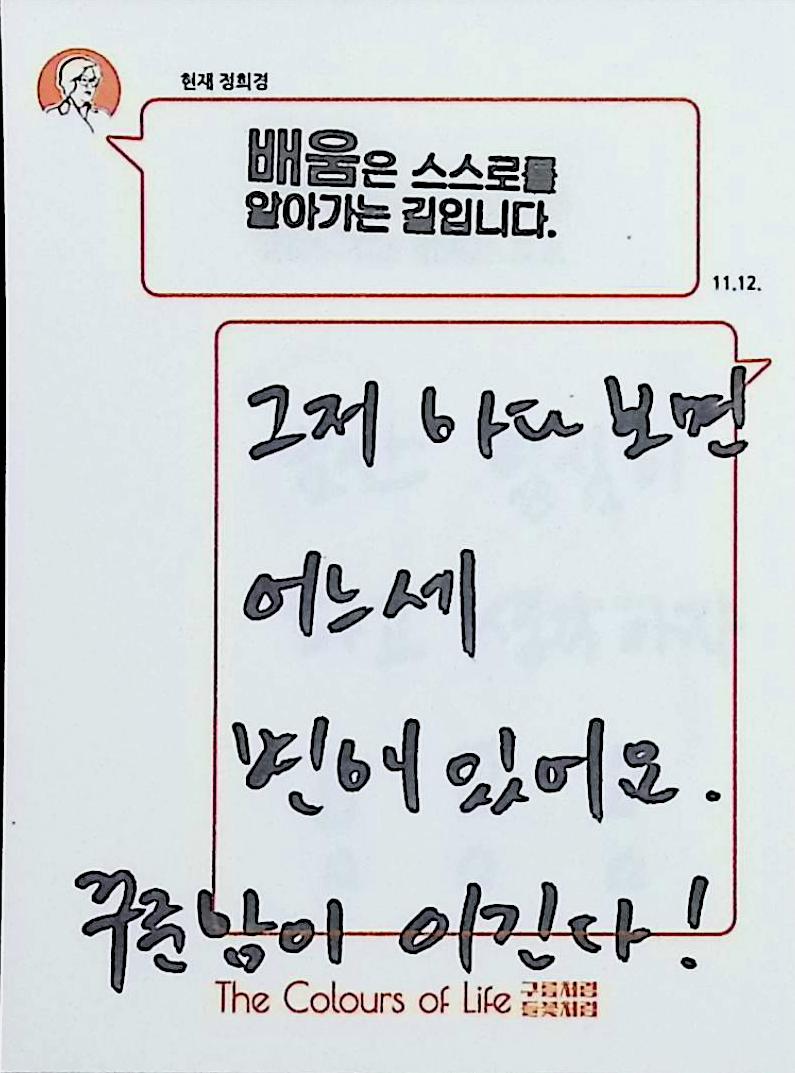 현재 정희경
배움은 스스로를
알아가는 길입니다.
11.12.
그저 하다 보면
어느세
변해 있어요.
꾸준함이 이긴다!
The Colours of Life 구름처럼
들꽃처럼